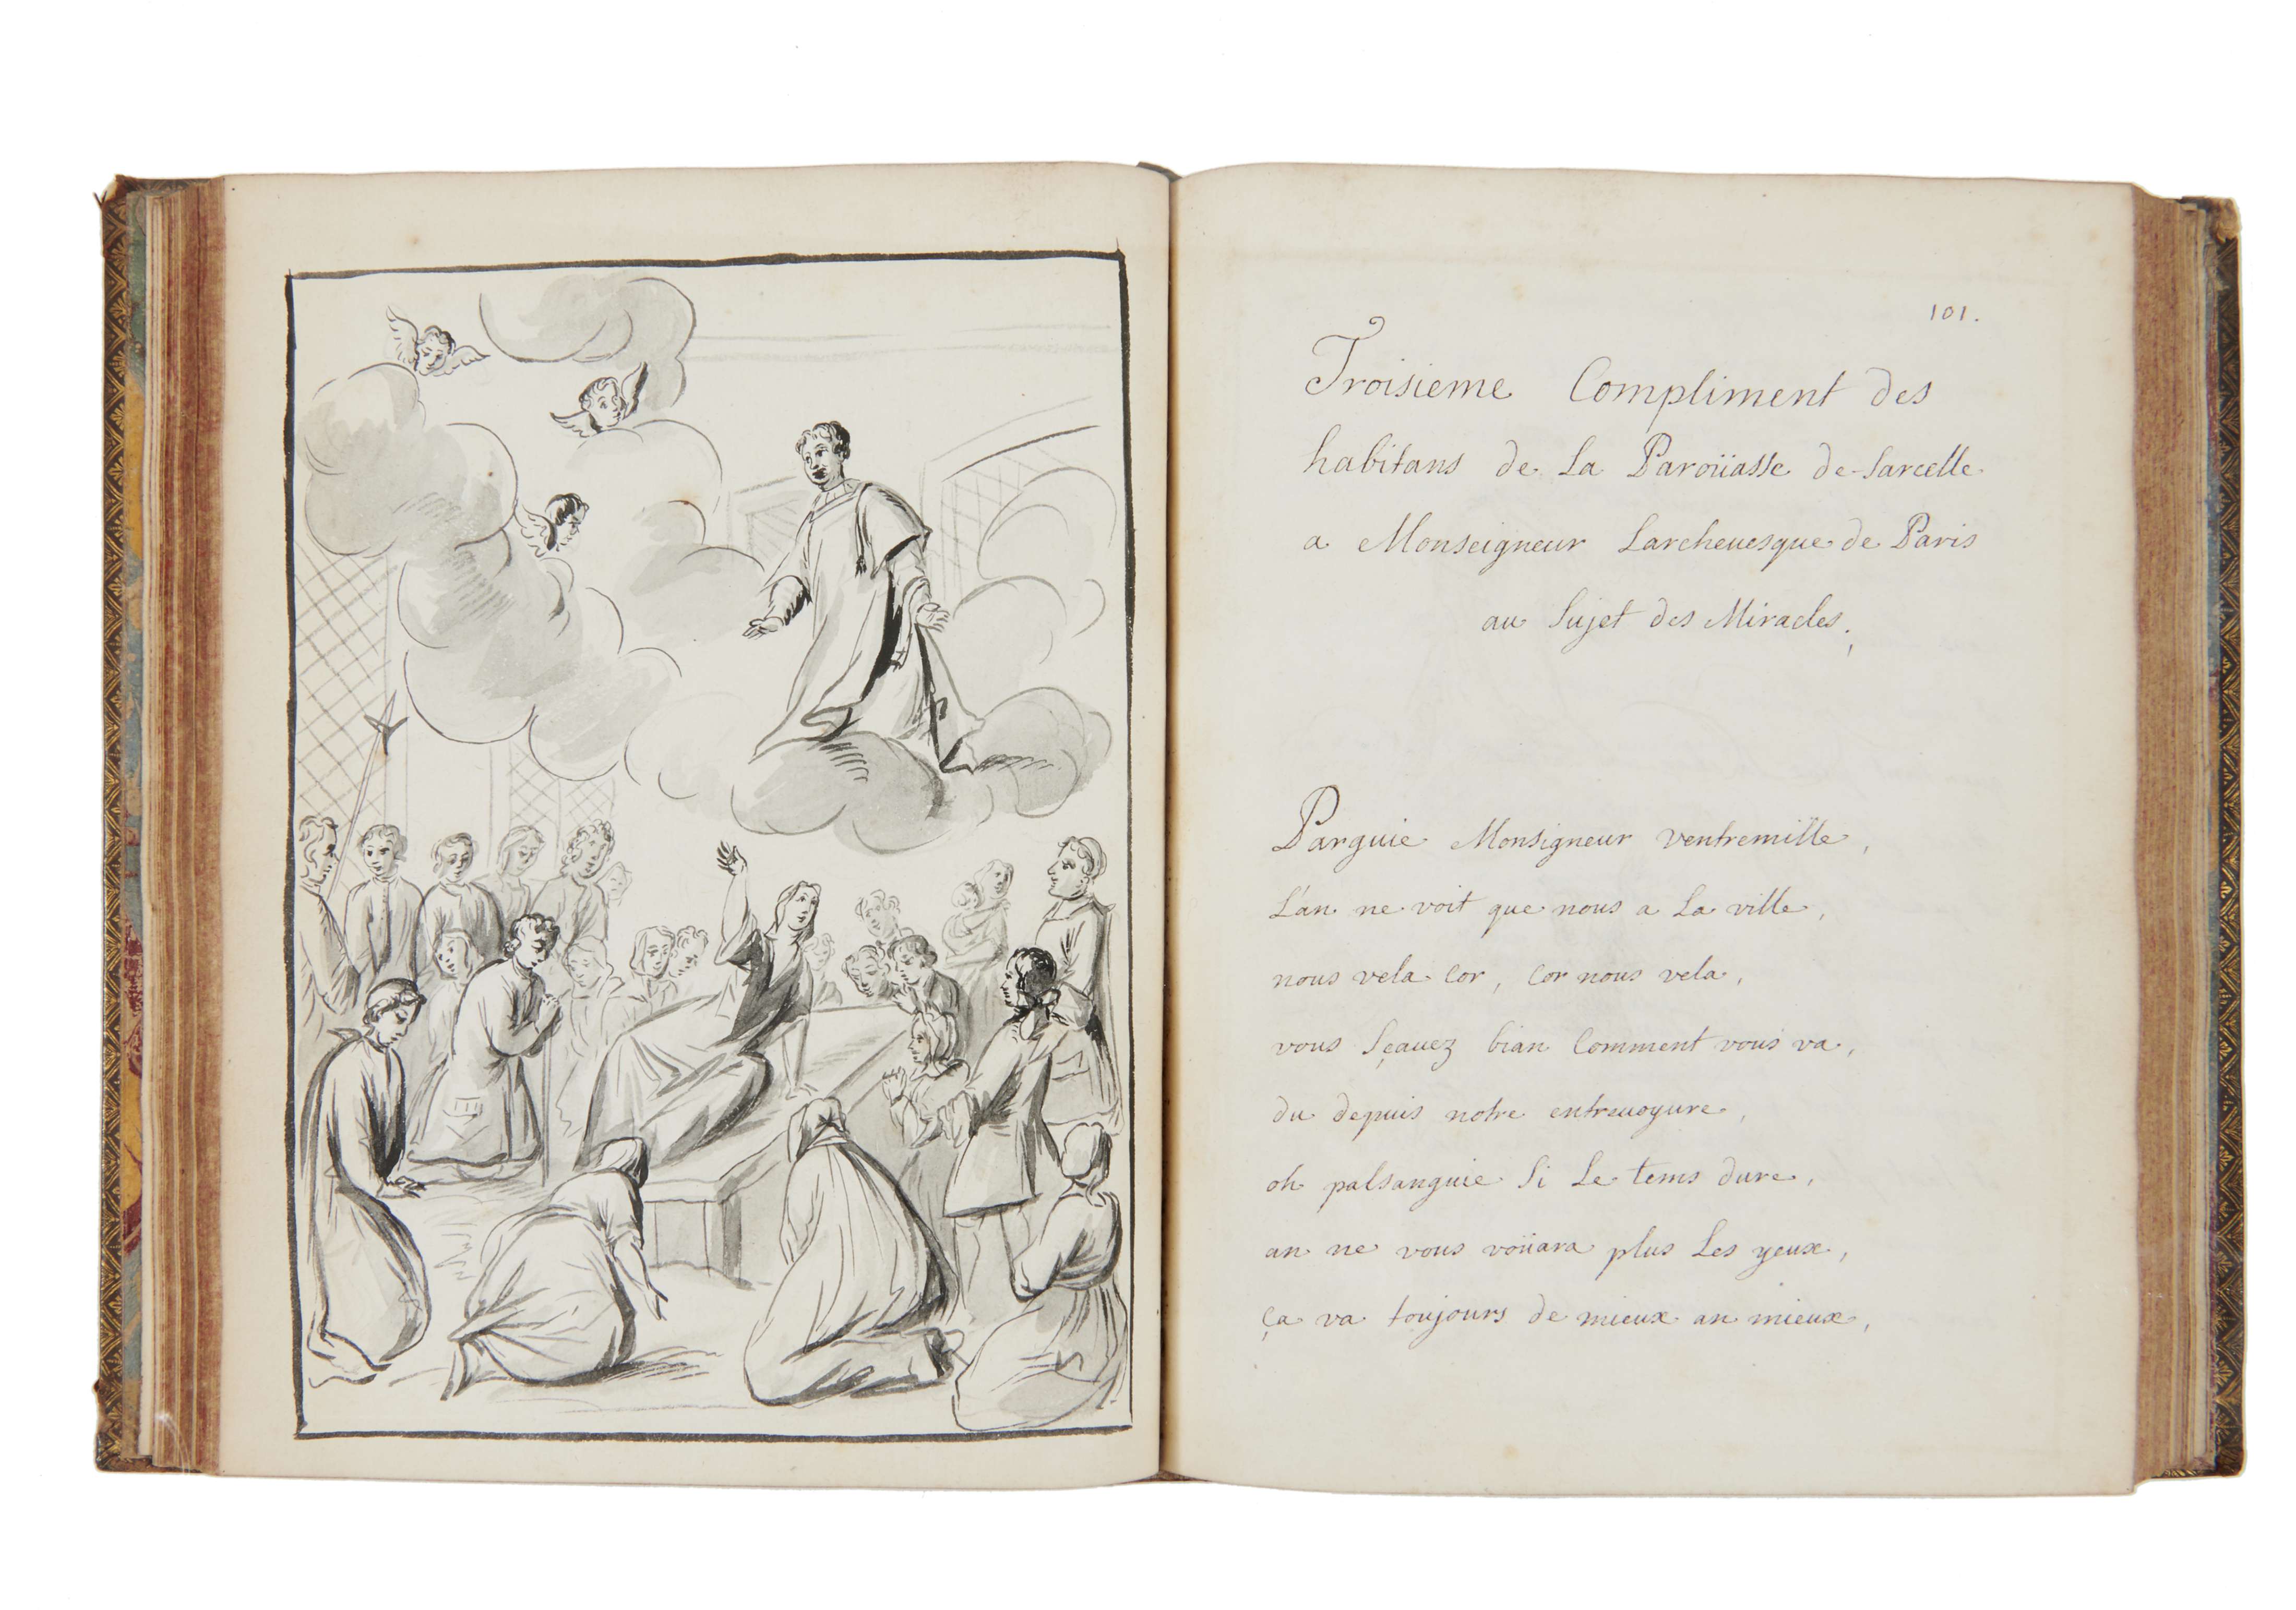 101.
Troisieme Compliment des
habitans de La Paroüasse de Sarcelle
a Monseigneur Larcheuesque de Paris
au Sujet des Miracles,
Parguie Monsigneur ventremille,
L'an ne voit que nous a La ville,
nous vela Cor, Cor nous vela,
vous Sçauez bian Comment vous va,
du depuis notre entreuoyure,
oh palsanguie Si Le tems dure,
an ne vous voüara plus Les yeux,
ça va toujours de mieux an mieux,